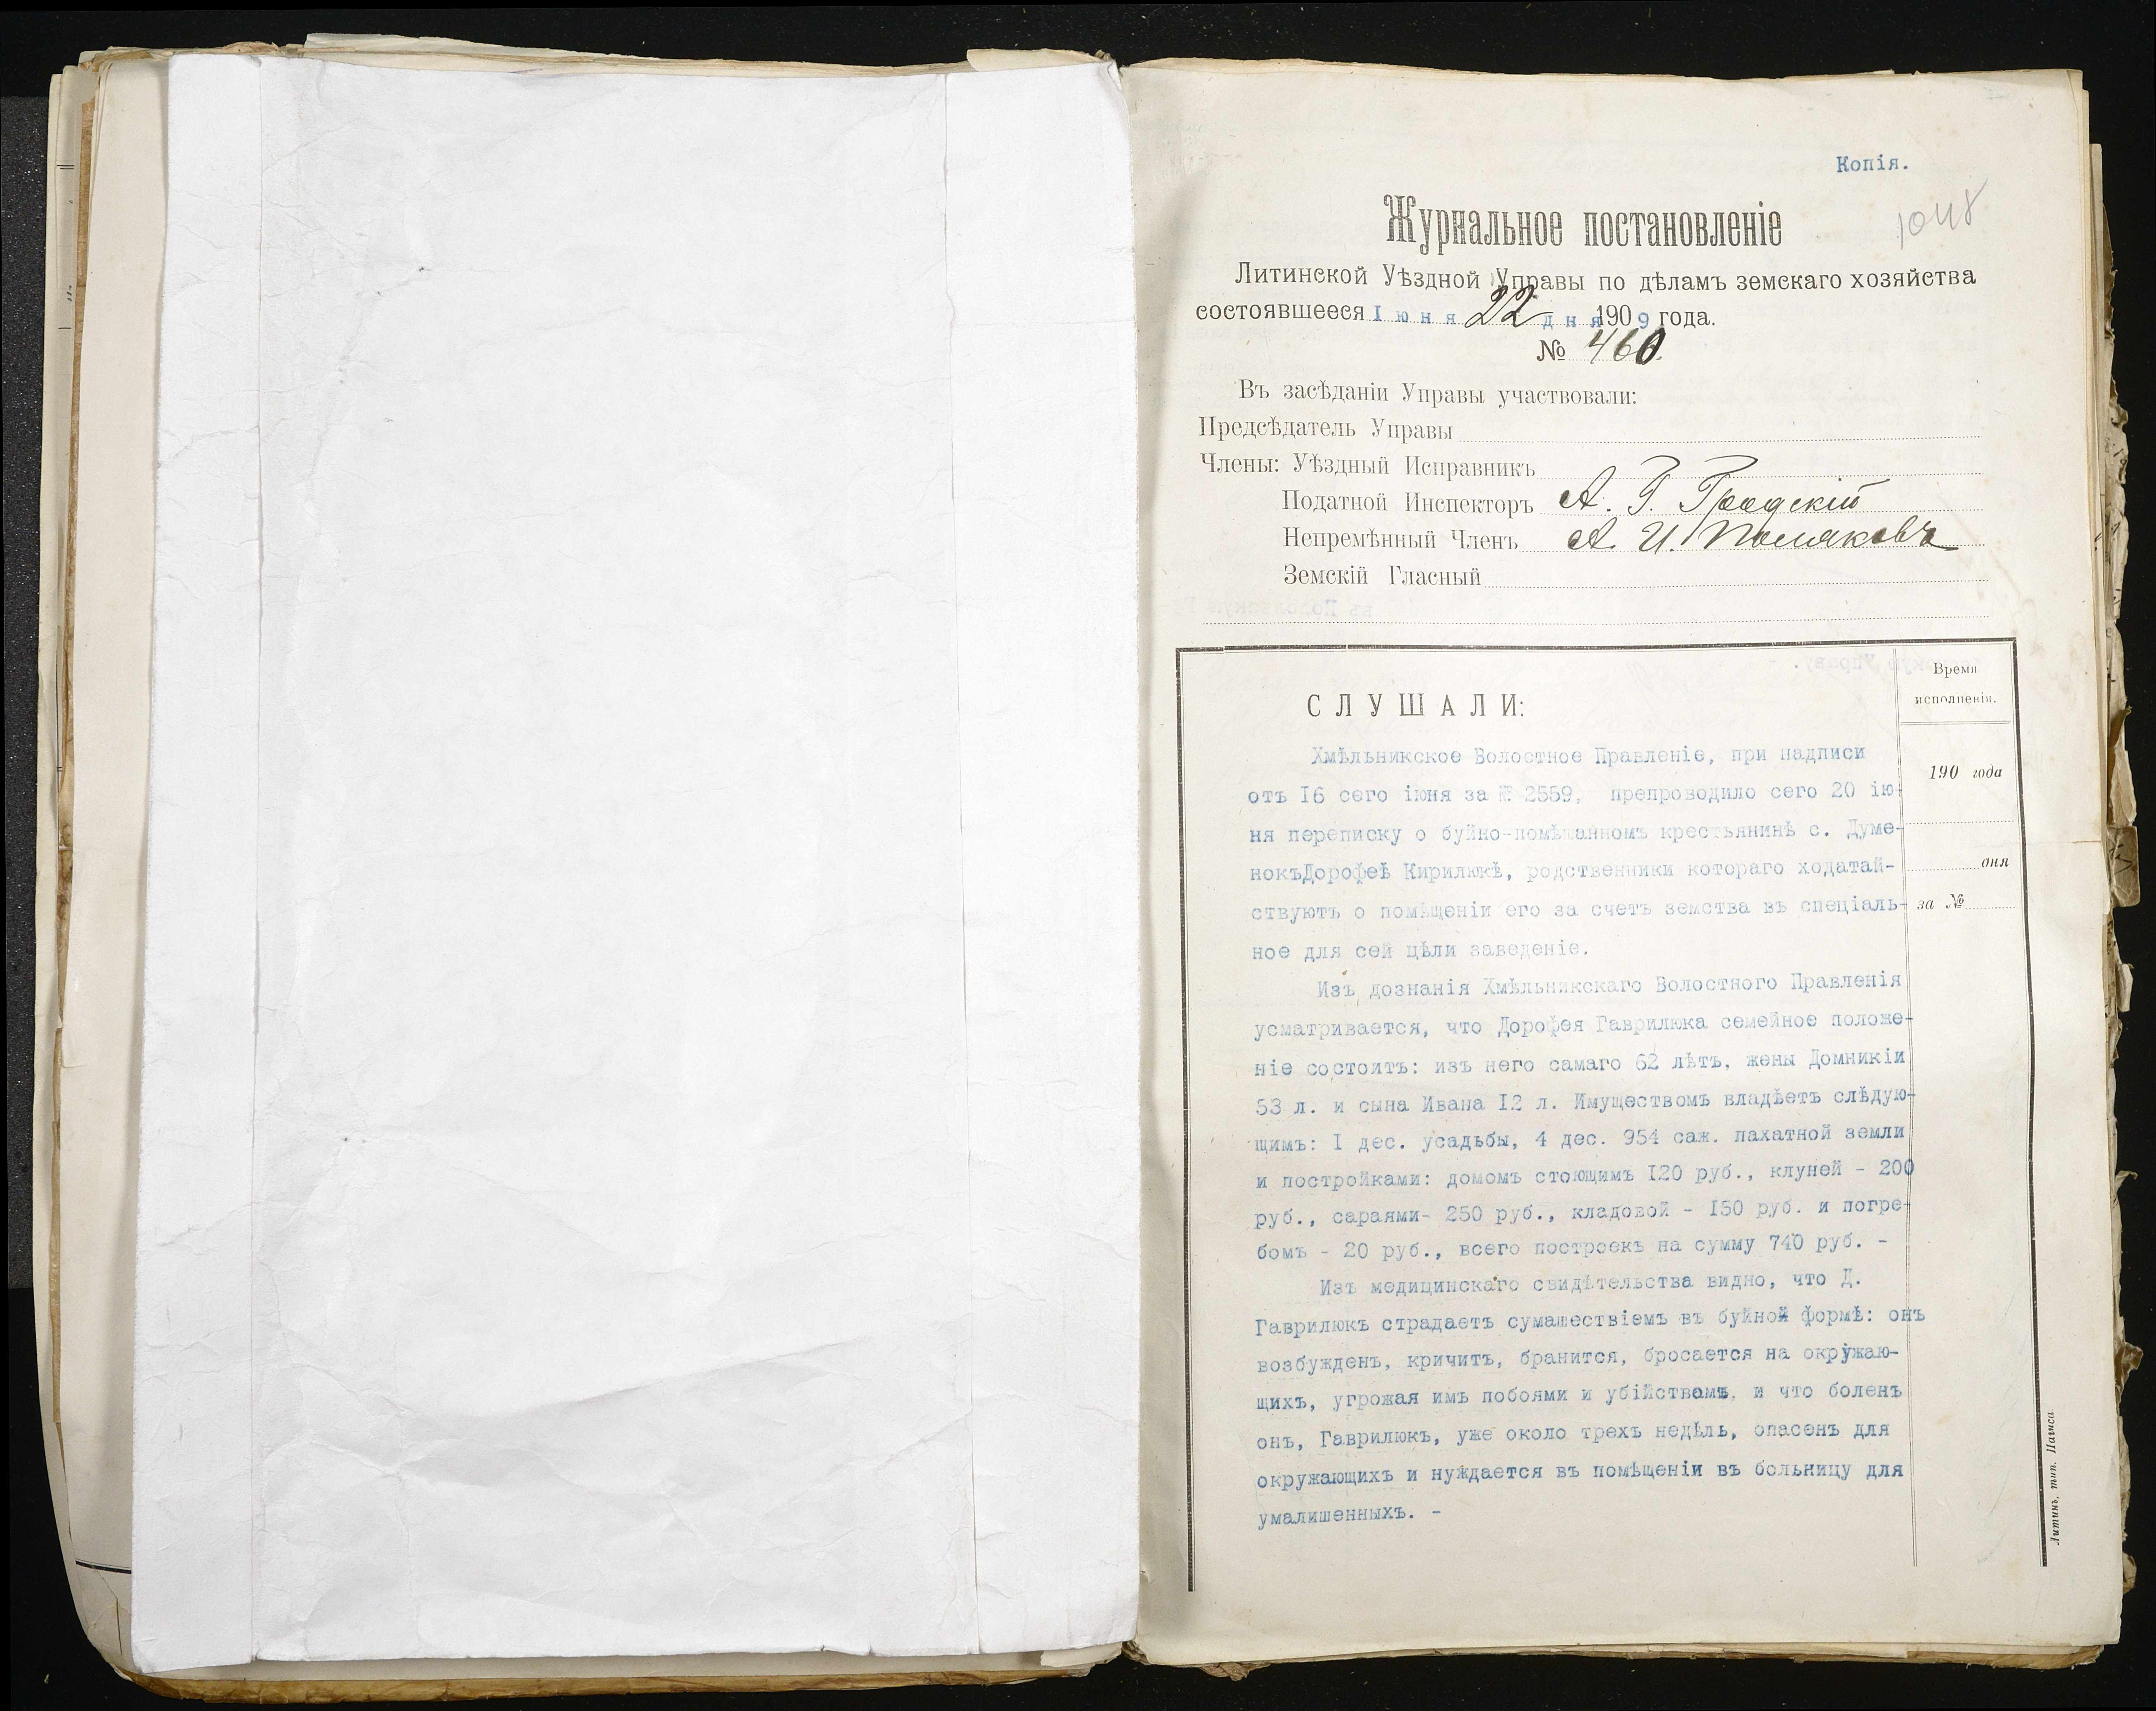 Копія.
1048
Журнальное постановленіе
Литинской Уѣздной Управы по дѣламъ земскаго хозяйства
состоявшееся Іюня 22 дня 1909 года.
№ 460.
Въ засѣданіи Управы участвовали:
Предсѣдатель Управы
Члены: Уѣздный Исправникъ
Податной Инспекторъ А. Г. Гродскій
Непремѣнный Членъ А. И. Поляковъ
Земскій Гласный
СЛУШАЛИ:
Хмѣльникское Волостное Правленіе, при надписи
отъ 16 сего іюня за № 2559, препроводило сего 20 ію-
ня переписку о буйно-помѣшанномъ крестьянинѣ с. Думе-
нокъДорофеѣ Кирилюкѣ, родственники котораго ходатай-
ствуютъ о помѣщеніи его за счетъ земства въ спеціаль-
ное для сей цѣли заведеніе.
Изъ дознанія Хмѣльникскаго Волостного Правленія
усматривается, что Дорофея Гаврилюка семейное положе-
ніе состоитъ: изъ него самаго 62 лѣтъ, жены Домникіи
53 л. и сына Ивана 12 л. Имуществомъ владѣетъ слѣдую-
щимъ: I дес. усадьбы, 4 дес. 954 саж. пахатной земли
и постройками: домомъ стоющимъ 120 руб., клуней - 200
руб., сараями- 250 руб., кладовой - 150 руб. и погре-
бомъ - 20 руб., всего построекъ на сумму 740 руб. -
Изъ медицинскаго свидѣтельства видно, что Д.
Гаврилюкъ страдаетъ сумашествіемъ въ буйной формѣ: онъ
возбужденъ, кричитъ, бранится, бросается на окружаю-
щихъ, угрожая имъ побоями и убійствомъ, и что боленъ
онъ, Гаврилюкъ, уже около трехъ недѣль, опасенъ для
окружающихъ и нуждается въ помѣщеніи въ больницу для
умалишенныхъ. -
Время
исполненія.
190 года
дня
за №
Литинъ, тип.